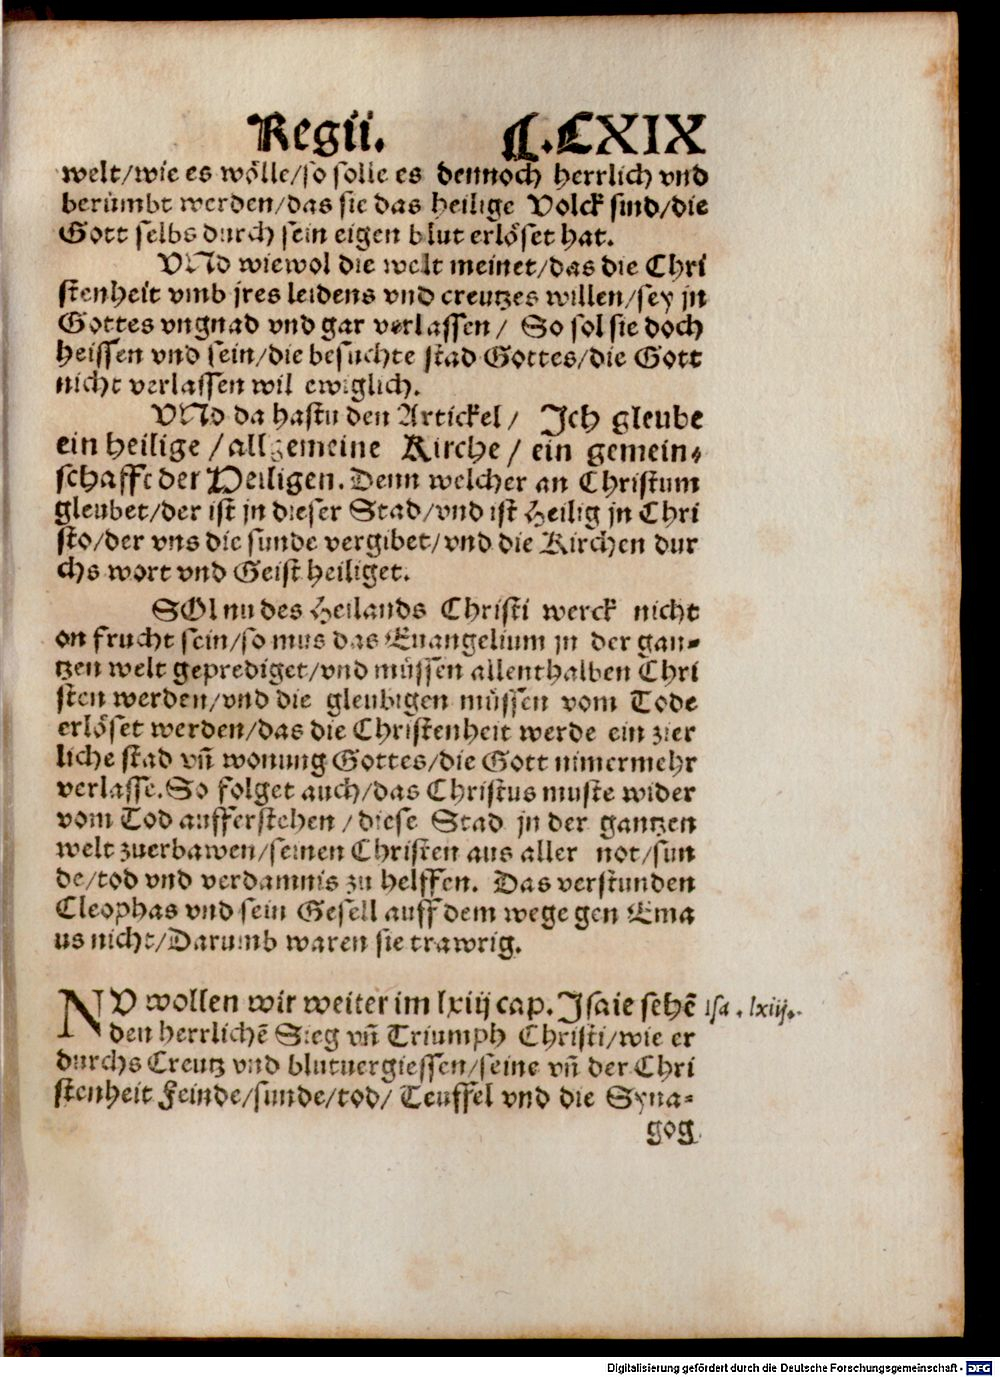 Regii. C.LXIX
welt/wie es wölle/so solle es dennoch herrlich vnd
berümbt werden/das sie das heilige Volck sind/die
Gott selbs durch sein eigen blut erlöset hat.
VNd wiewol die welt meinet/das die Chri
stenheit vmb jres leidens vnd creutzes willen/sey jn
Gottes vngnad vnd gar verlassen/ So sol sie doch
heissen vnd sein/die besuchte stad Gottes/die Gott
nicht verlassen wil ewiglich.
VNd da hastu den Artickel/ Ich gleube
ein heilige/allgemeine Kirche/ ein gemein-
schafft der Heiligen. Denn welcher an Christum
gleubet/der ist jn dieser Stad/vnd ist Heilig jn Chri
sto/der vns die sunde vergibet/vnd die Kirchen dur
chs wort vnd Geist heiliget.
SOl nu des Heilands Christi werck nicht
on frucht sein/so mus das Euangelium jn der gan-
tzen welt geprediget/vnd müssen allenthalben Chri
sten werden/vnd die gleubigen müssen vom Tode
erlöset werden/das die Christenheit werde ein zier
liche stad vn̄ wonung Gottes/die Gott nimermehr
verlasse. So folget auch/das Christus muste wider
vom Tod aufferstehen/diese Stad jn der gantzen
welt zuerbawen/seinen Christen aus aller not/sun
de/tod vnd verdamnis zu helffen. Das verstunden
Cleophas vnd sein Gesell auff dem wege gen Ema
us nicht/Darumb waren sie trawrig.
NV wollen wir weiter im lxiij cap. Isaie sehē
Isa. lxiij.
den herrlichē Sieg vn̄ Triumph Christi/wie er
durchs Creutz vnd blutuergiessen/seine vn̄ der Chri
stenheit Feinde/sunde/tod/ Teuffel vnd die Syna-
gog
Digitalisierung gefördert durch die Deutsche Forschungsgemeinschaft - DFG